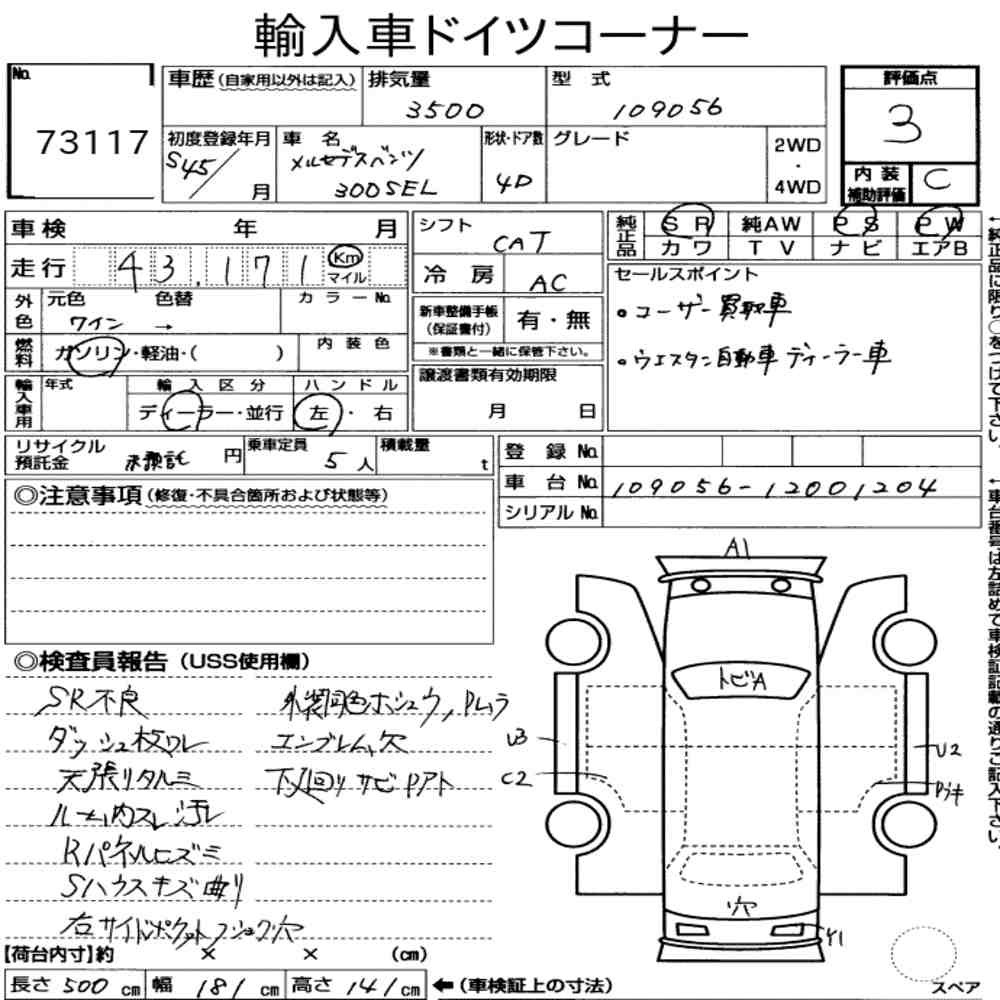 輸入車ドイツコーナー
No. 73117
車歴 (自家用以外は記入)
排気量 3500
型式 109056
評価点 3
初度登録年月 S45/ 月
車名 メルセデスベンツ 300SEL
形状・ドア数 4D
グレード
2WD ・ 4WD
内装補助評価 C
車検 年 月
シフト CAT
純正品 SR 純AW PS PW
カワ TV ナビ エアB
走行 43,171 Km マイル
冷房 AC
セールスポイント
外色 元色 ワイン → 色替 カラーNo.
新車整備手帳 (保証書付) 有・無
・ユーザー買取車
※書類と一緒に保管下さい。
燃料 ガソリン・軽油・( ) 内装色
・ウエスタン自動車ディーラー車
譲渡書類有効期限 月 日
輸入車用 年式 輸入区分 ハンドル
ディーラー・並行 左・右
リサイクル預託金 未預託 円 乗車定員 5人 積載量 t
登録No.
車台No. 109056-12001204
シリアルNo.
◎注意事項 (修復・不具合箇所および状態等)
←純正品に限り○をつけて下さい。
←車台番号は左詰めで車検証記載の通りご記入下さい。
◎検査員報告 (USS使用欄)
SR不良
ダッシュ枚ワレ
天張リタルミ
ルーム内スレ汚レ
Rパネルヒズミ
Sハウスキズ曲リ
右サイドポケットフショク穴
外装同色ホシュウ,Pムラ
エンブレム穴
下廻リサビPアト
A1
トビA
U3
C2
U2
Pハキ
穴
Y1
【荷台内寸】約 × × (cm)
長さ 500 cm 幅 181 cm 高さ 141 cm ←(車検証上の寸法)
スペア